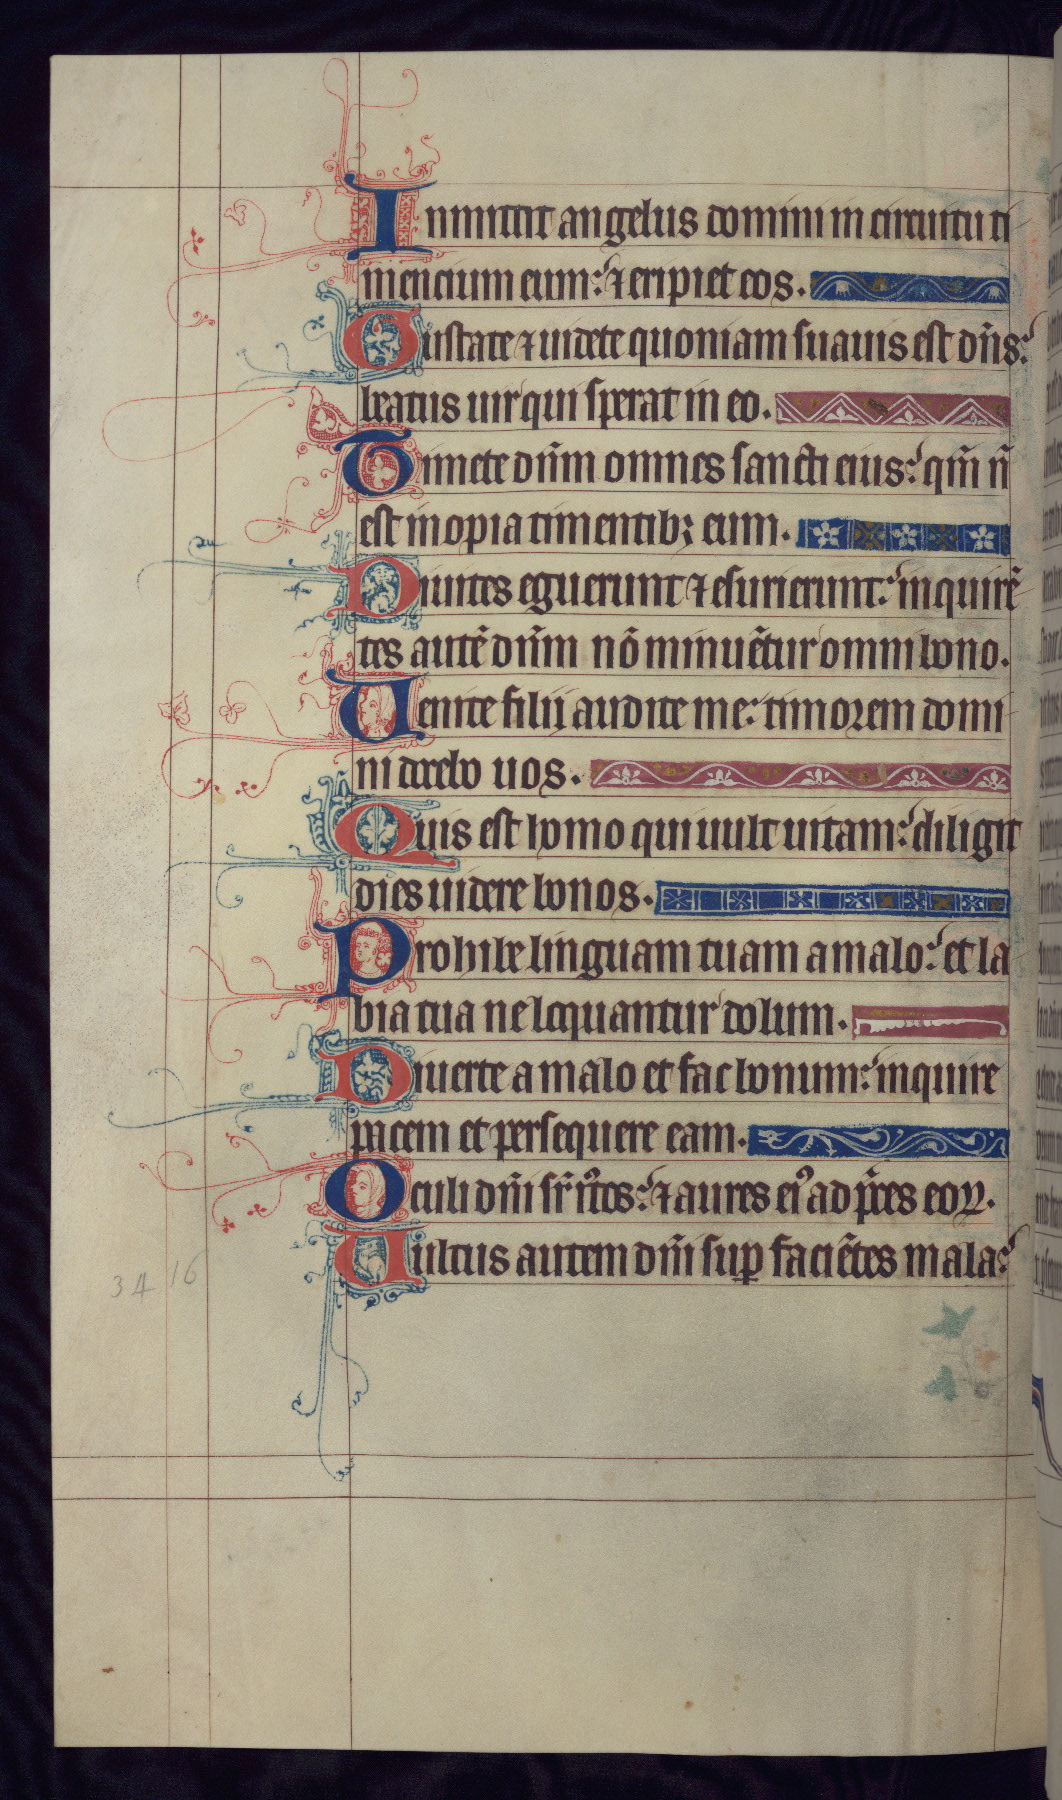 Inmittit angelus domini in circuitu ti
mencium eum: ⁊ eripiet eos.
Gustate ⁊ uidete quoniam suauis est dn̄s:
beatus uir qui sperat in eo.
Timete dn̄m omnes sancti eius: qm̄ n̄
est inopia timentibꝫ eum.
Diuites eguerunt ⁊ esurierunt: inquirē
tes autē dn̄m nō minuētur omni bono.
Uenite filii audite me: timorem domi
ni docebo uos.
Quis est homo qui uult uitam: diligit
dies uidere bonos.
Prohibe linguam tuam a malo: et la
bia tua ne loquantur dolum.
Diuerte a malo et fac bonum: inquire
pacem et persequere eam.
Oculi dn̄i sr̄ iꝰtos: ⁊ aures eiꝰ ad p̄ces eoꝝ.
Uultus autem dn̄i suꝑ faciētes mala:
34 16